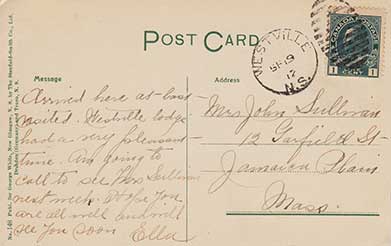 POST CARD
WESTVILLE
SP 19
12
N.S.
CANADA POSTAGE
1 CENT 1
Message
Address
Arrived here at last
visited Westville lodge
had a very pleasant
time. Am going to
call to see Mrs Sullivan
next week. Hope you
are all well and will
see you soon Ella
Mrs John Sullivan
12 Garfield St
Jamaica Plain
Mass.
No. 148 Publ. for George Wills, New Glasgow, N. S. by The
Dresden (Germany) and Truro, N. S.